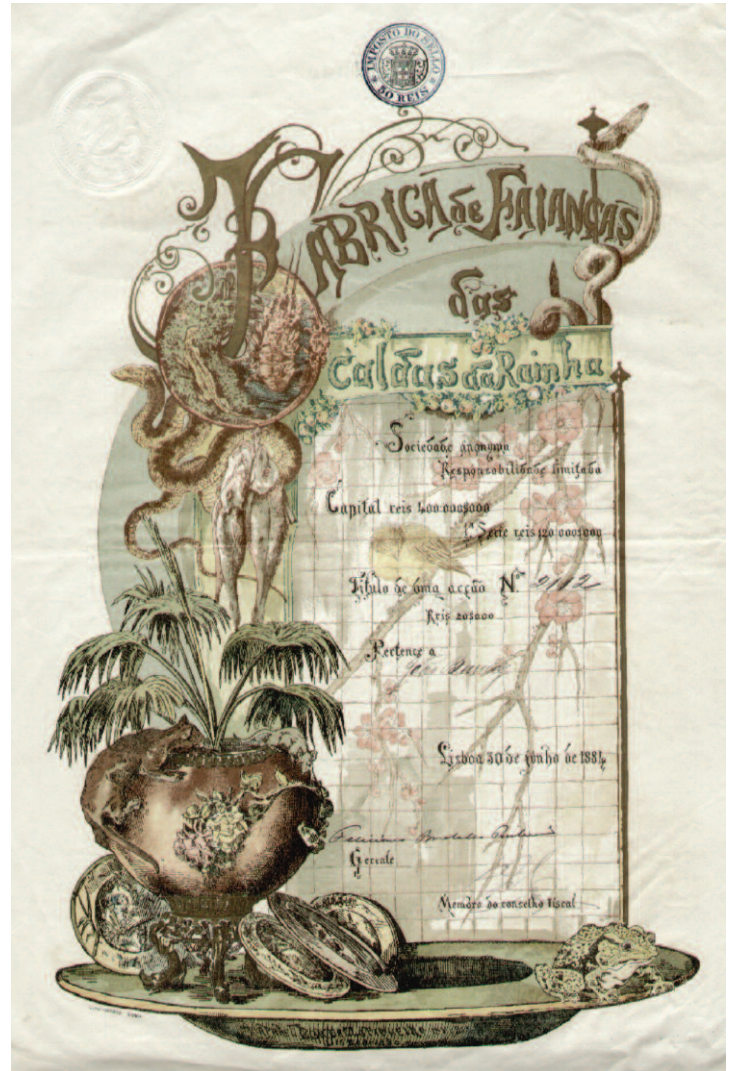 IMPOSTO DO SELLO
50 REIS
FABRICA de FAIANÇAS
das
Caldas da Rainha
Sociedade anonyma
Responsabilidade limitada
Capital reis 400:000$000
1ª Serie reis 120:000$000
Titulo de uma acção Nº
Reis 20$000
Pertence a
Lisboa 30 de junho de 1884
Gerente
Membro do conselho fiscal